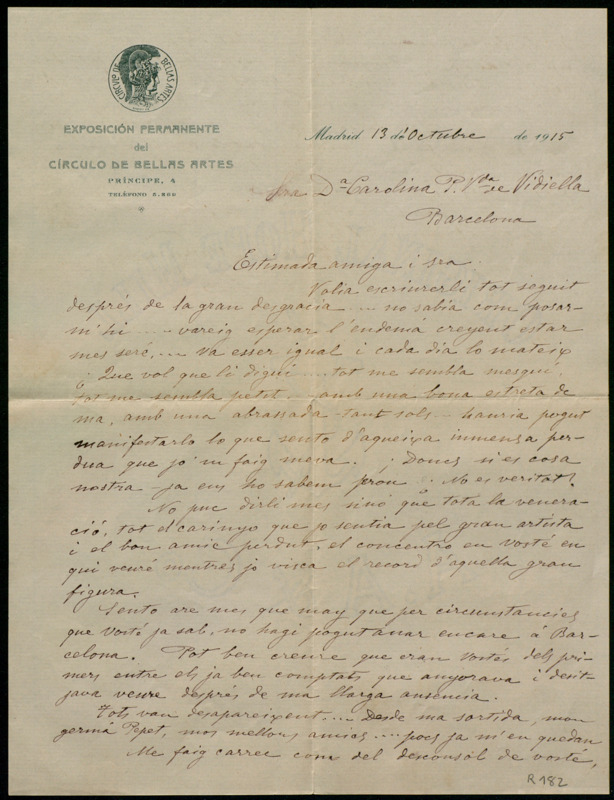 CÍRCULO DE BELLAS ARTES
EXPOSICIÓN PERMANENTE
del
CÍRCULO DE BELLAS ARTES
PRÍNCIPE, 4
Madrid 13 de Octubre de 1915
Sra Dª Carolina P. Vda de Vidiella
Barcelona
Estimada amiga i sra.
Volia escriurerli tot seguit
després de la gran desgracia .... no sabía com posar-
m'hi .... vareig esperar l'endemá creyent estar
mes seré, ... Va esser igual i cada día lo mateix
¿Que vol que li digui .... tot me sembla mesquí,
tot me sembla petit .. amb una bona estreta de
ma, amb una abrassada tant sols .. hauria pogut
manifestarlo lo que sento d'aqueixa inmensa per-
dua que jo m faig meva. ¡Doncs si es cosa
nostra ja ens ho sabem prou .. No es veritat?
No puc dirli mes sinó que tota la venera-
ció, tot el carinyo que jo sentia pel gran artista
i el bon amic perdut, el concentro en vosté en
qui veuré mentres jo visca el record d'aquella gran
figura.
Sento are mes que may que per circunstancies
que vosté ja sab, no hagi pogut anar encare á Bar-
celona. Pot ben creure que eran vostés dels pri-
mers entre els ja ben comptats que anyorava i desit-
java veure després de ma llarga ausencia.
Tots van desapareixent .... Desde ma sortida, mon
germá Pepet, mos mellors amics .... pocs ja m'en quedan
Me faig carrec com del desconsól de vosté,
R 182